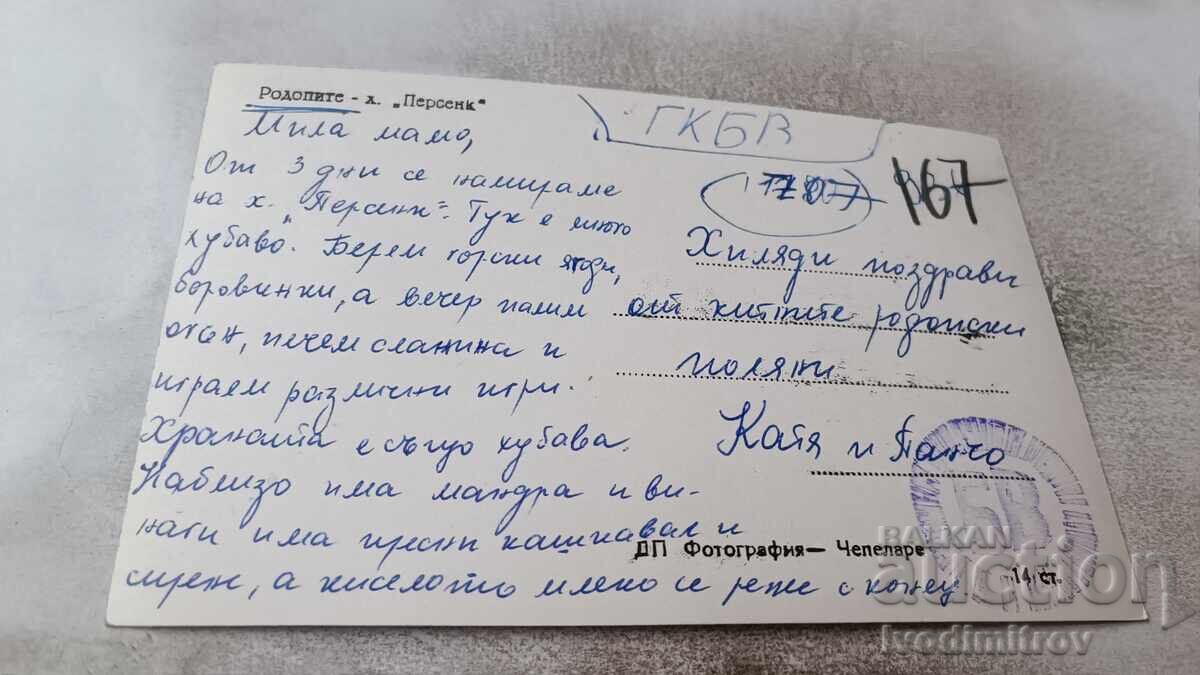 Родопите - х. „Персенк“
ГКБВ
167
Мила мамо,
От 3 дни се намираме
на х. „Персенк“. Тук е много
хубаво. Берем горски ягоди,
боровинки, а вечер палим
огън, печем сланина и
играем различни игри.
Храната е също хубава.
Наблизо има мандра и ви-
наги има пресен кашкавал и
сирене, а киселото мляко се реже с конец.
Хиляди поздрави
от китните родопски
поляни
Катя и Панчо
ДП Фотография— Чепеларе
14 ст.
БВ
BALKAN
auction
ivodimitrov